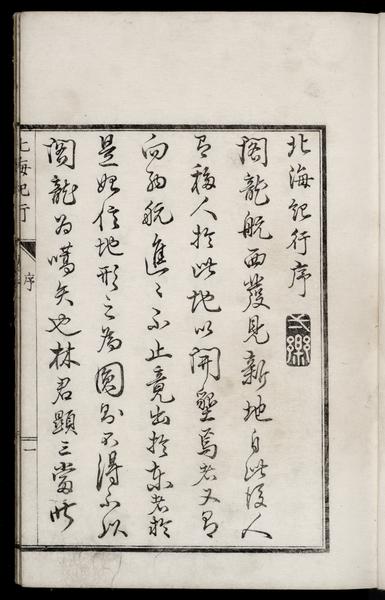 北海紀行序
閣龍航西發見新地自此後人
有移人於此地以開墾焉者又有
向西航進々不止竟出於東者於
是始信地形之為圓則不得不以
閣龍為嚆矢也林君顯三
北海紀行
序
一